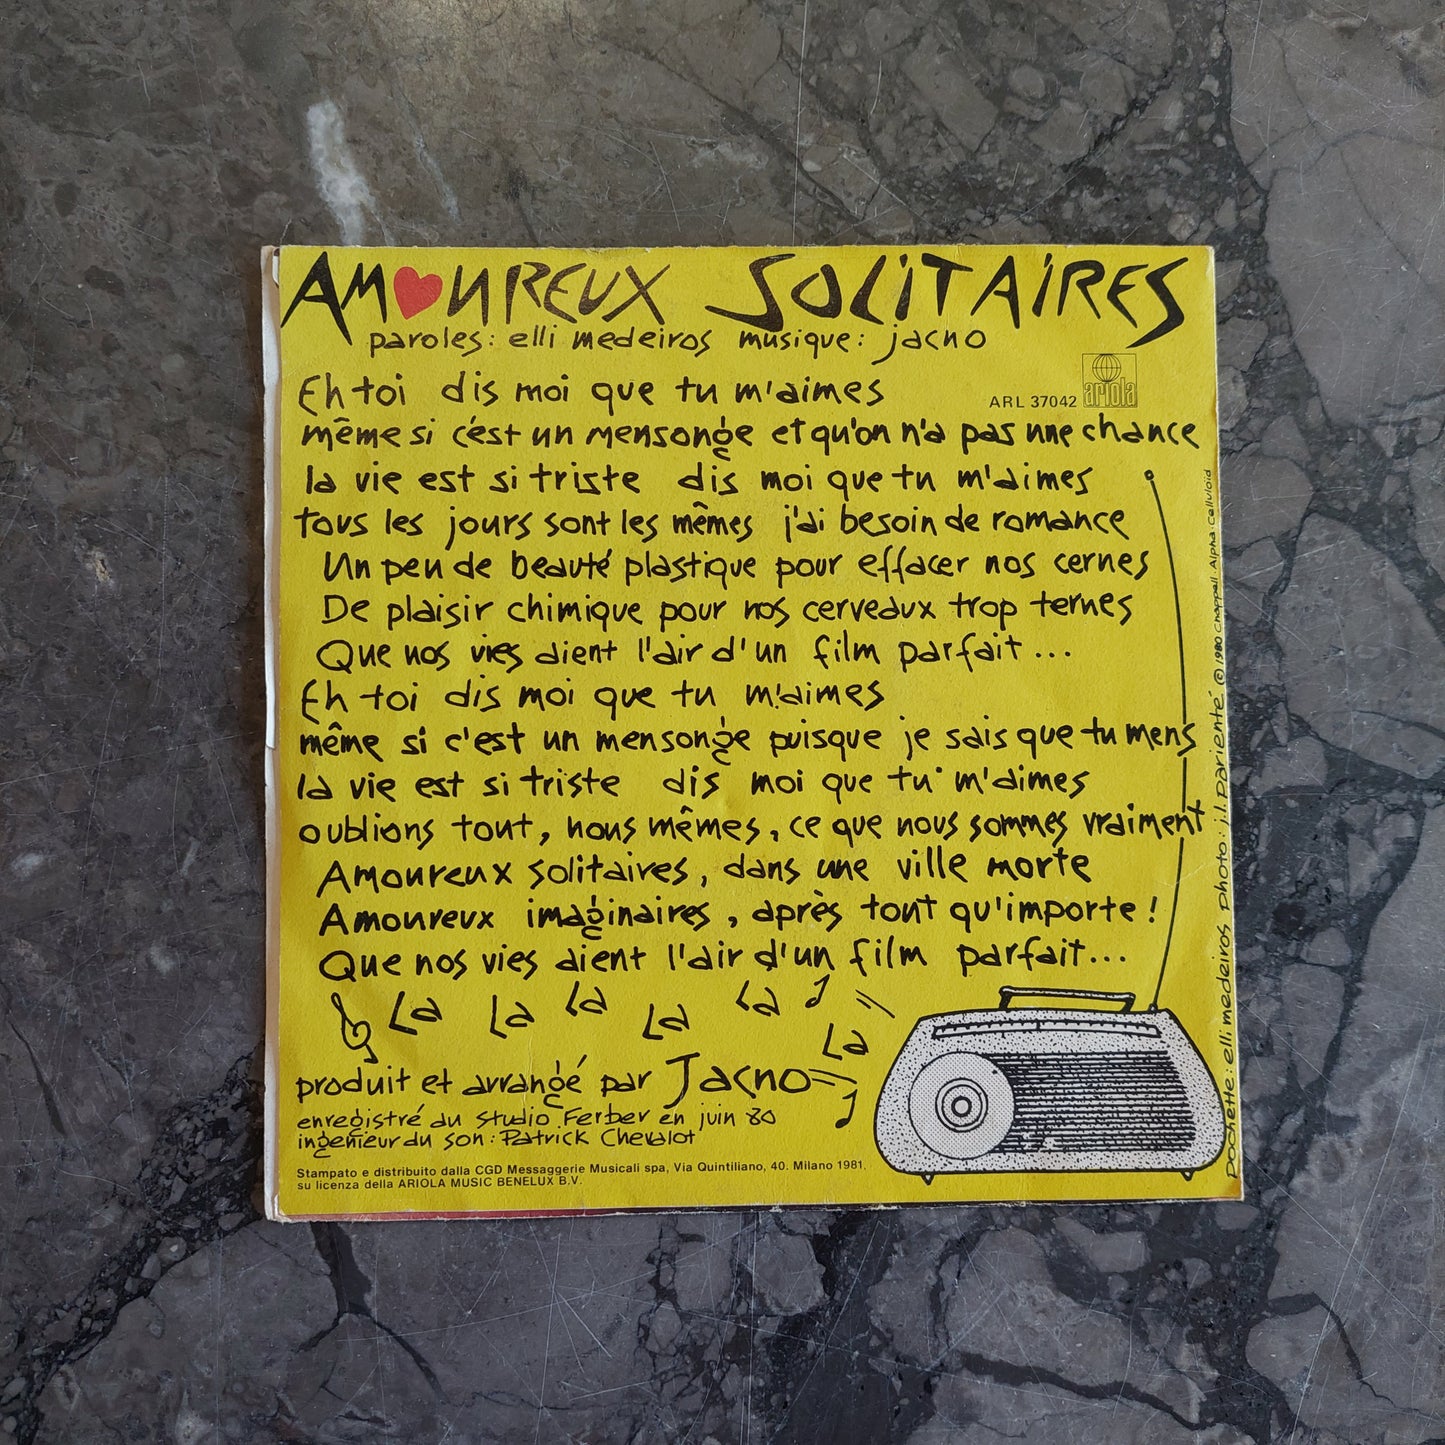 AMOUREUX SOLITAIRES
paroles: elli medeiros musique: jacno
ARL 37042 ariola
Eh toi dis moi que tu m'aimes
même si c'est un mensonge et qu'on n'a pas une chance
la vie est si triste dis moi que tu m'aimes
tous les jours sont les mêmes j'ai besoin de romance
Un peu de beauté plastique pour effacer nos cernes
De plaisir chimique pour nos cerveaux trop ternes
Que nos vies aient l'air d'un film parfait...
Eh toi dis moi que tu m'aimes
même si c'est un mensonge puisque je sais que tu mens
la vie est si triste dis moi que tu m'aimes
oublions tout, nous mêmes, ce que nous sommes vraiment
Amoureux solitaires, dans une ville morte
Amoureux imaginaires, après tout qu'importe!
Que nos vies aient l'air d'un film parfait...
La La La La La La
produit et arrangé par Jacno
enregistré au Studio Ferber en juin 80
ingenieur du son: Patrick Chevalot
Stampato e distribuito dalla CGD Messaggerie Musicali spa, Via Quintiliano, 40. Milano 1981,
su licenza della ARIOLA MUSIC BENELUX B.V.
pochette: elli medeiros photo: j.l. pariente © 1980 Chappell. Alpha. Celluloid